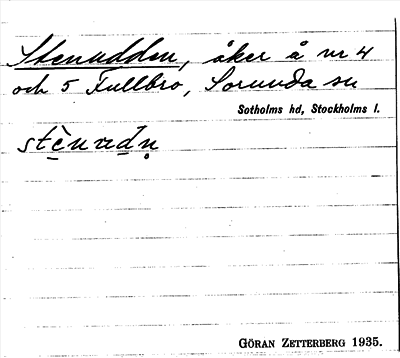 Stenudden, åker å nr 4
och 5 Fullbro, Sorunda sn
Sotholms hd, Stockholms l.
GÖRAN ZETTERBERG 1935.